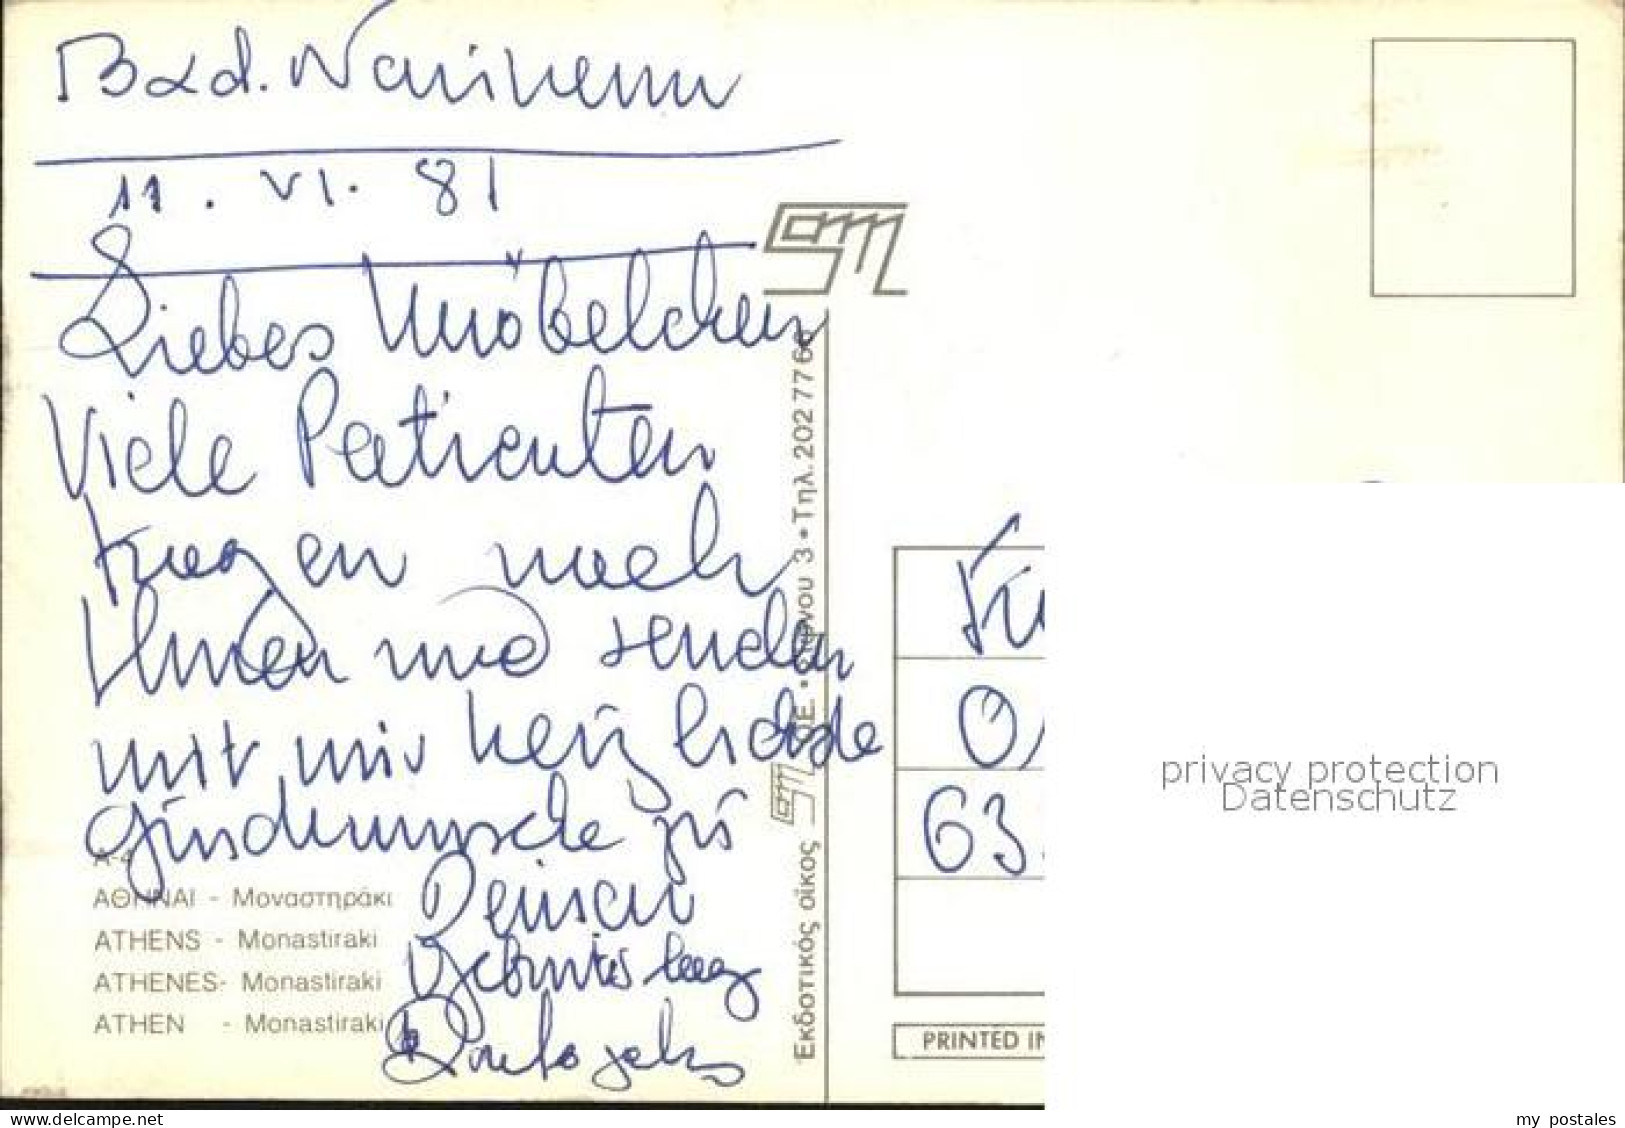 Bad. Nauheim
11. VI. 81
Liebes Möbelchen
Viele Patienten
fragen nach
Ihnen und senden
mit mir herzlichste
Glückwünsche zu
Deinem
Geburtstag
ΑΘΗΝΑΙ - Μοναστηράκι
ATHENS - Monastiraki
ATHENES- Monastiraki
ATHEN - Monastiraki
Ἐκδοτικός οἶκος
Τηλ. 202 77 6
63
PRINTED IN
privacy protection
Datenschutz
www.delcampe.net
my postales